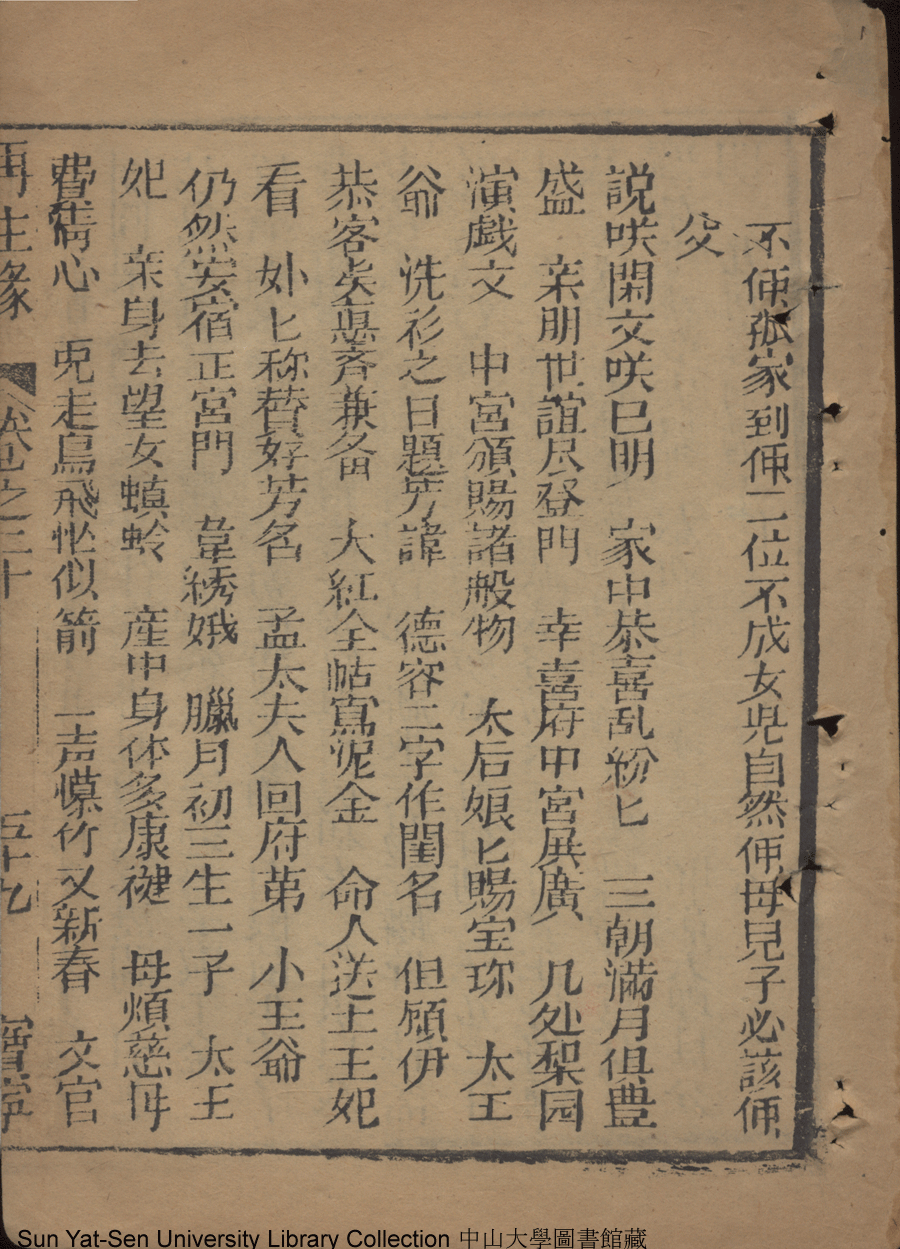 不像孤家到像二位不成女児自然像母見子必該像
父
説咲閑文咲巳明　家中恭喜乱紛匕　三朝滿月俱豊
盛　亲朋世誼尽登門　幸喜府中宮展廣　几处梨园
演戯文　中宮頒賜諸般物　太后娘匕賜宝珎　太王
爺　洗衫之日題芳諱　德容二字作閨名　但願伊
恭容矣惪斉兼备　大紅全帖寫泥金　命人送上王妃
看　妣匕称賛好芳名　孟太夫人回府苐　小王爺
仍然安宿正宮門　韋綉娥　臘月初三生一子　太王
妃　亲身去望女螟蛉　産中身体多康健　母煩慈母
費精心　兎走烏飛恾似箭　一声㷟竹又新春　文官
再生缘　卷之二十　五十九　寳寧
Sun Yat-Sen University Library Collection 中山大學圖書館藏